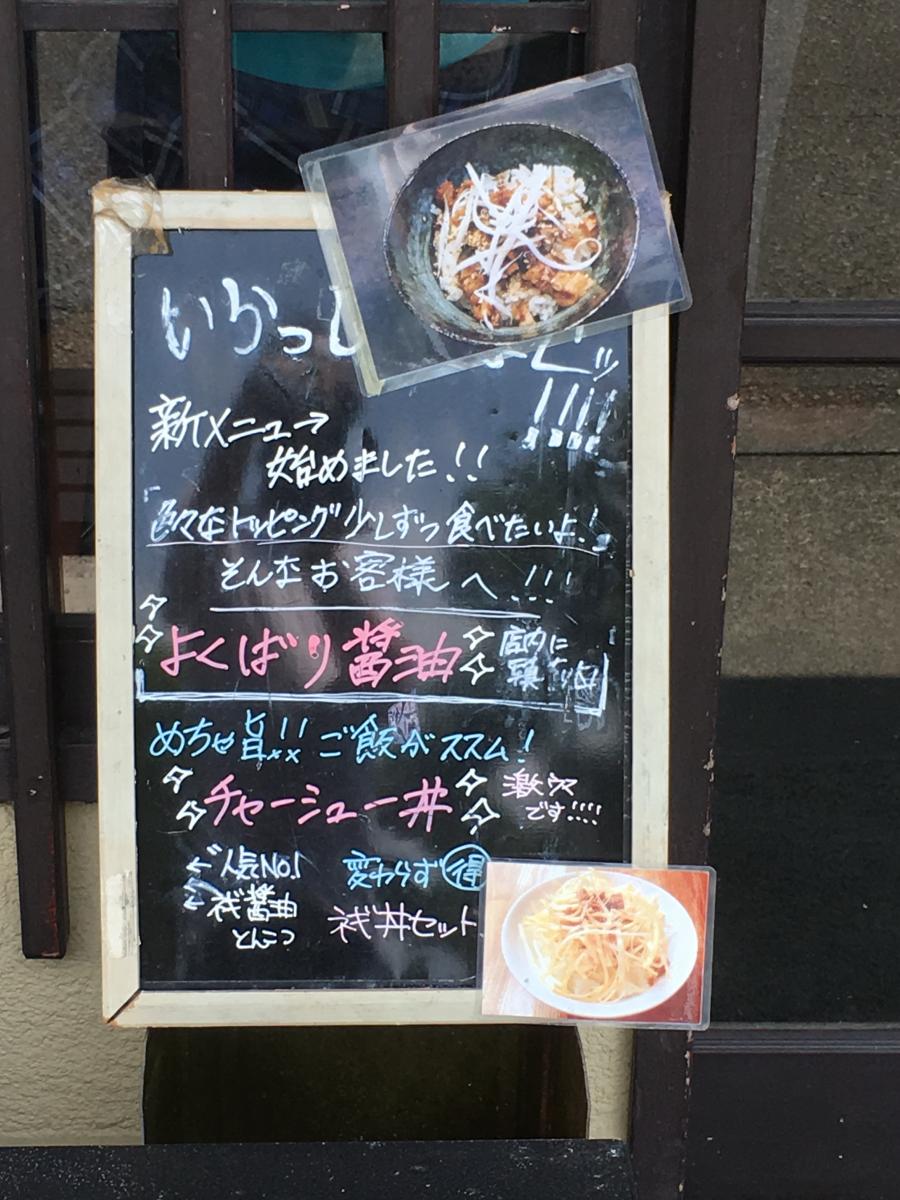 いかっし
ッ
!!!!
新メニュー→
始めました!!
色々なトッピング少しずつ食べたいよ!
そんなお客様へ!!!
よくばり醤油
店内に
めちゃ旨!! ご飯がススム!
チャーシュー丼
激ウマ
です!!!!
人気No.1
ネギ醤油
とんこつ
変わらず得
ネギ丼セット